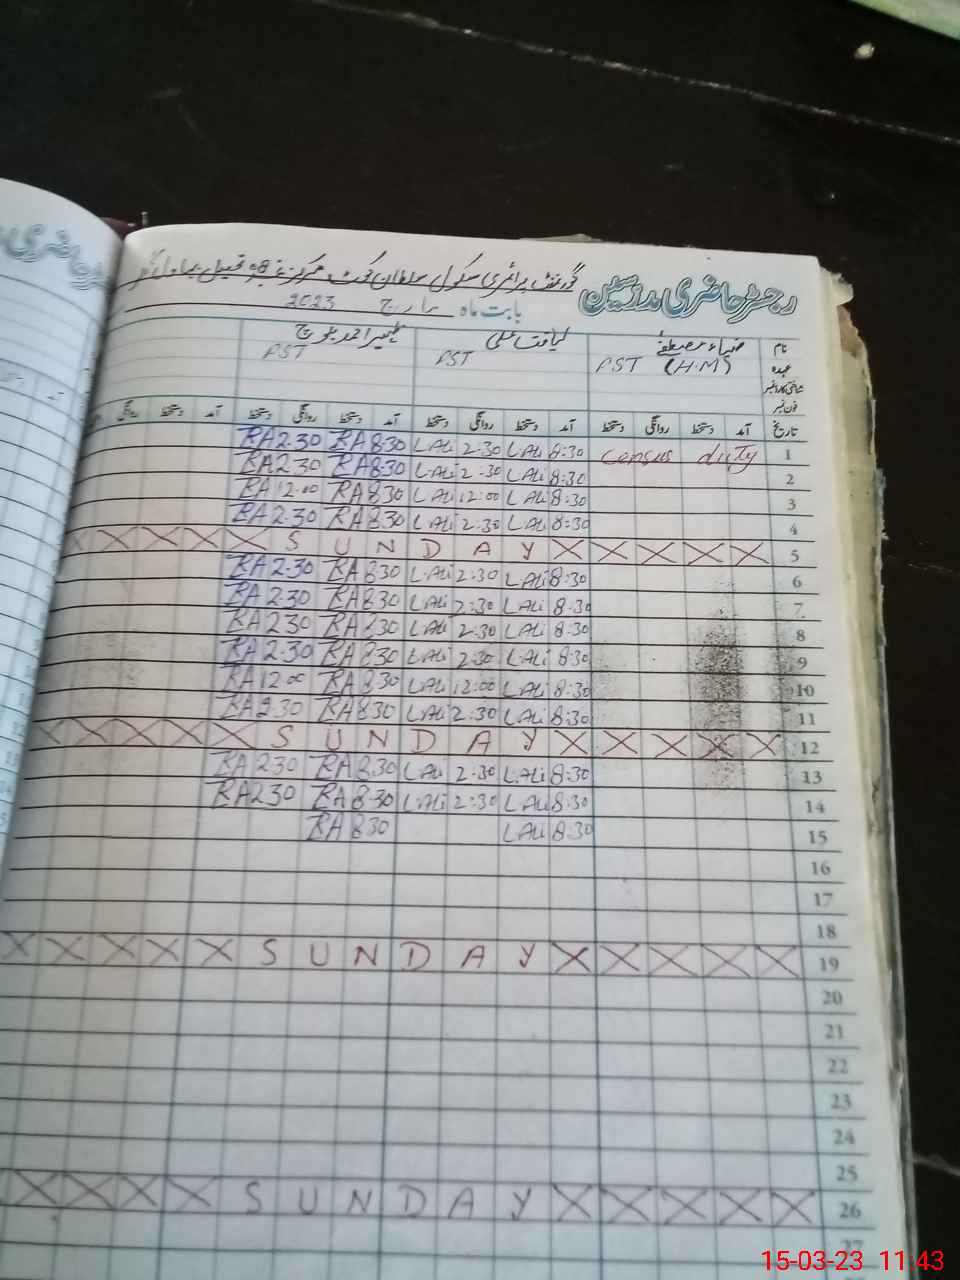 رجسٹر حاضری مدرسین
گورنمنٹ پرائمری سکول سلطان کوٹ مرکز تحصیل
بابت ماہ مارچ 2023
نام ضیاء مصطفیٰ لیاقت علی ظہیر احمد بلوچ
عہدہ PST (H.M) PST PST
شناختی کارڈ نمبر
فون نمبر
تاریخ آمد دستخط روانگی دستخط آمد دستخط روانگی دستخط آمد دستخط روانگی دستخط آمد دستخط روانگی
RA 2.30 RA 8.30 L.Ali 2:30 L.Ali 8:30 census duty 1
RA 2.30 RA 8.30 L.Ali 2:30 L.Ali 8:30 2
RA 12.00 RA 8.30 L.Ali 12:00 L.Ali 8:30 3
RA 2.30 RA 8.30 L.Ali 2:30 L.Ali 8:30 4
X X X X X S U N D A Y X X X X X 5
RA 2.30 RA 8.30 L.Ali 2:30 L.Ali 8:30 6
RA 2.30 RA 8.30 L.Ali 2:30 L.Ali 8:30 7
RA 2.30 RA 8.30 L.Ali 2:30 L.Ali 8:30 8
RA 2.30 RA 8.30 L.Ali 2:30 L.Ali 8:30 9
RA 12.00 RA 8.30 L.Ali 12:00 L.Ali 8:30 10
RA 2.30 RA 8.30 L.Ali 2:30 L.Ali 8:30 11
X X X X X S U N D A Y X X X X X 12
RA 2.30 RA 8.30 L.Ali 2:30 L.Ali 8:30 13
RA 2.30 RA 8.30 L.Ali 2:30 L.Ali 8:30 14
RA 8.30 L.Ali 8:30 15
16
17
18
X X X X X S U N D A Y X X X X X 19
20
21
22
23
24
25
X X X X X S U N D A Y X X X X X 26
27
15-03-23 11:43